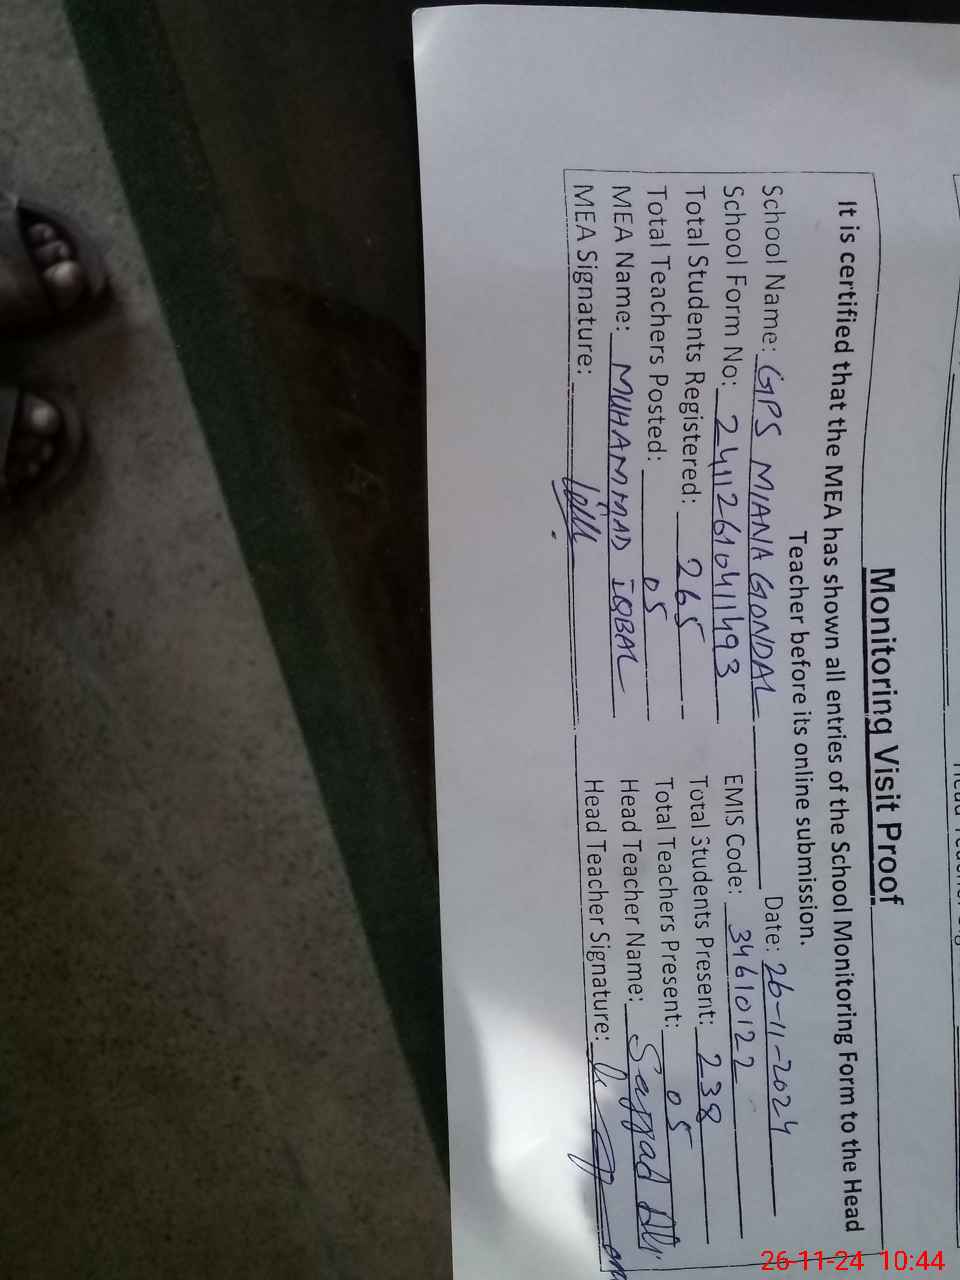 Monitoring Visit Proof
It is certified that the MEA has shown all entries of the School Monitoring Form to the Head
Teacher before its online submission.
School Name: GPS MIANA GONDAL Date: 26-11-2024
School Form No: 24112610411493 EMIS Code: 34610122
Total Students Registered: 265 Total Students Present: 238
Total Teachers Posted: 05 Total Teachers Present: 05
MEA Name: MUHAMMAD IQBAL Head Teacher Name: Sajjad Ali
MEA Signature: Head Teacher Signature:
26-11-24 10:44